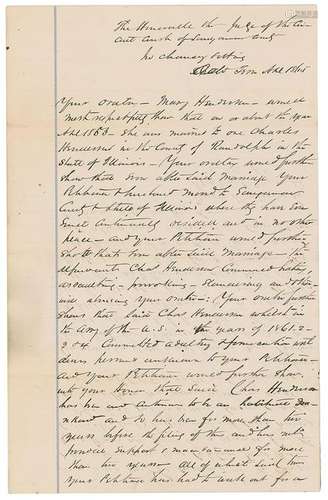 The Honorable the Judge of the Cir
cuit Court of Sangamon County
In Chancery Sitting
Octob Term AD 1865
Your orator – Mary Henderson – would
most respectfully show that on or about the year
AD 1853 She was married to one Charles
Henderson in the County of Randolph in the
State of Illinois – Your orator would further
show that soon after said Marriage Your
Petitioner & husband moved to Sangamon
County & State of Illinois where they have ever
since continually resided and in no other
place – and your Petitioner would further
show that soon after said Marriage the
Defendant Chas Henderson Commenced
assaulting – provoking – slandering and other
wise abusing your orator –: Your orator further
shows that said Chas Henderson whilst in
the Army of the U.S. in the years of 1861. 2 –
3 & 4 Committed adultery & fornication with
divers persons unknown to your Petitioner –
and your Petitioner would further show
unto your Honor that said Chas Henderson
has been and continues to be an habitual drun
kard and so has been for more than two
years before the filing of this and has not
provided support & maintenance for more
than two years all of which said time
your Petitioner has had to work out for a